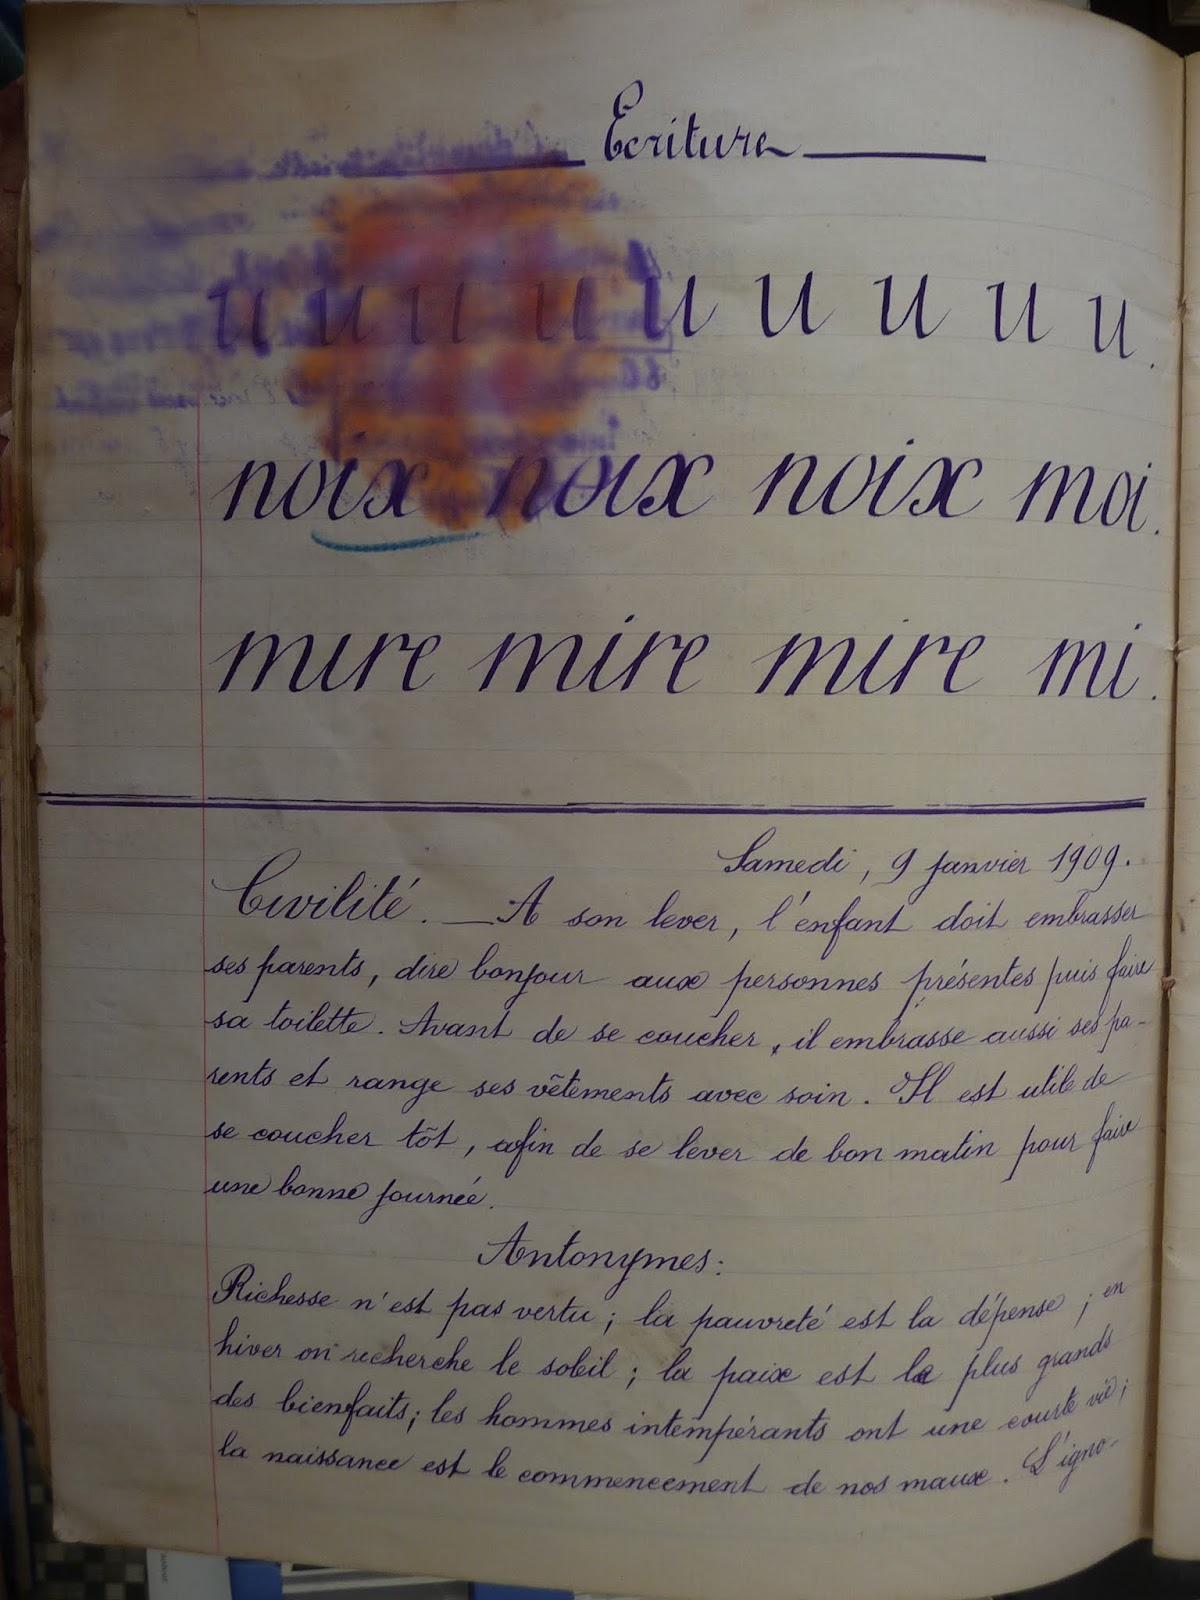 Ecriture
u u u u u u u u u.
noix noix noix moi.
mire mire mire mi.
Samedi, 9 janvier 1909.
Civilité. — A son lever, l'enfant doit embrasser
ses parents, dire bonjour aux personnes présentes puis faire
sa toilette. Avant de se coucher, il embrasse aussi ses pa-
rents et range ses vêtements avec soin. Il est utile de
se coucher tôt, afin de se lever de bon matin pour faire
une bonne journée.
Antonymes:
Richesse n'est pas vertu; la pauvreté est la dépense; en
hiver on recherche le soleil; la paix est le plus grands
des bienfaits; les hommes intempérants ont une courte vie;
la naissance est le commencement de nos maux. L'igno-